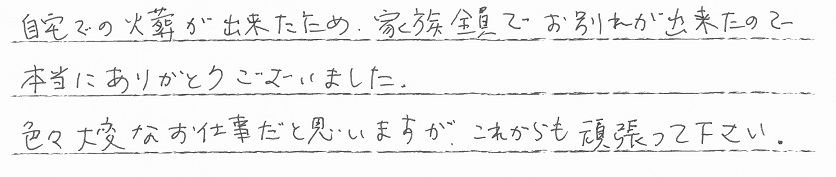 自宅での火葬が出来たため、家族全員でお別れが出来たので
本当にありがとうございました。
色々大変なお仕事だと思いますが、これからも頑張って下さい。